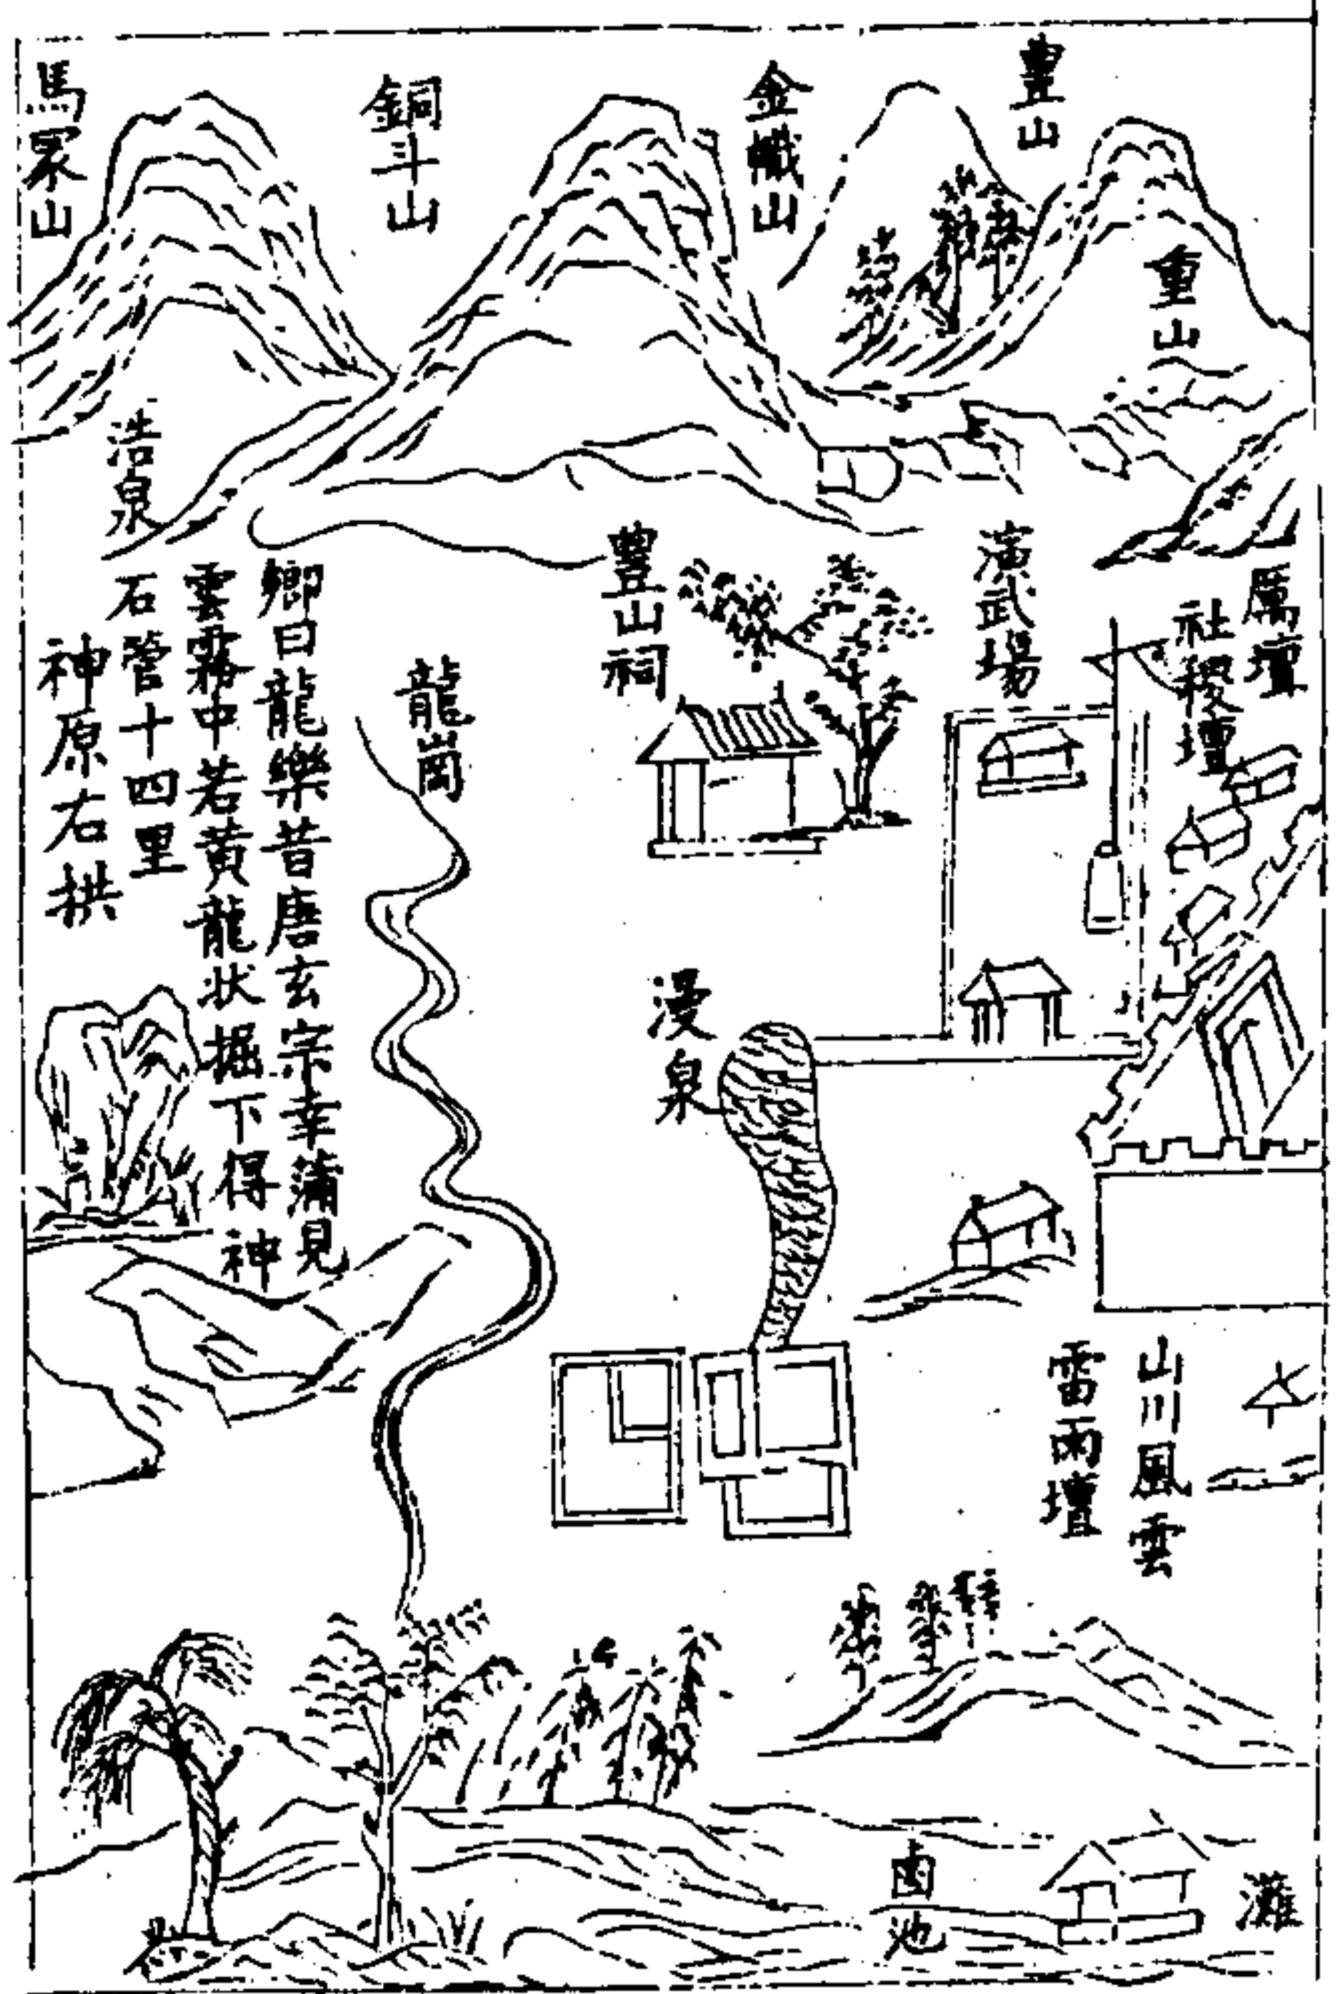 豊山
重山
金幟山
銅斗山
馬冢山
浩泉
厲壇
社稷壇
演武場
豊山祠
龍崗
鄉曰龍樂昔唐玄宗幸蒲見
雲霧中若黄龍状掘下得神
石管十四里
神原右拱
漫泉
山川風雲
雷雨壇
灘
鹵池